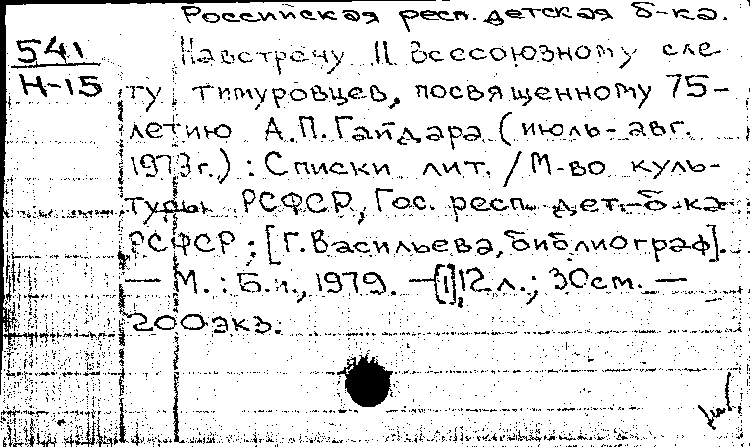 Российская респ. детская б-ка.
541
Н-15
Навстречу II Всесоюзному сле
ту тимуровцев, посвященному 75-
летию А.П. Гайдара (июль-авг.
1973г.) : Списки лит. / М-во куль-
туры РСФСР, Гос. респ. дет. б-ка
РСФСР ; [Г. Васильева, библиограф].
— М. : Б.и., 1979. — [1], 12 л. ; 30 см. —
200 экз.